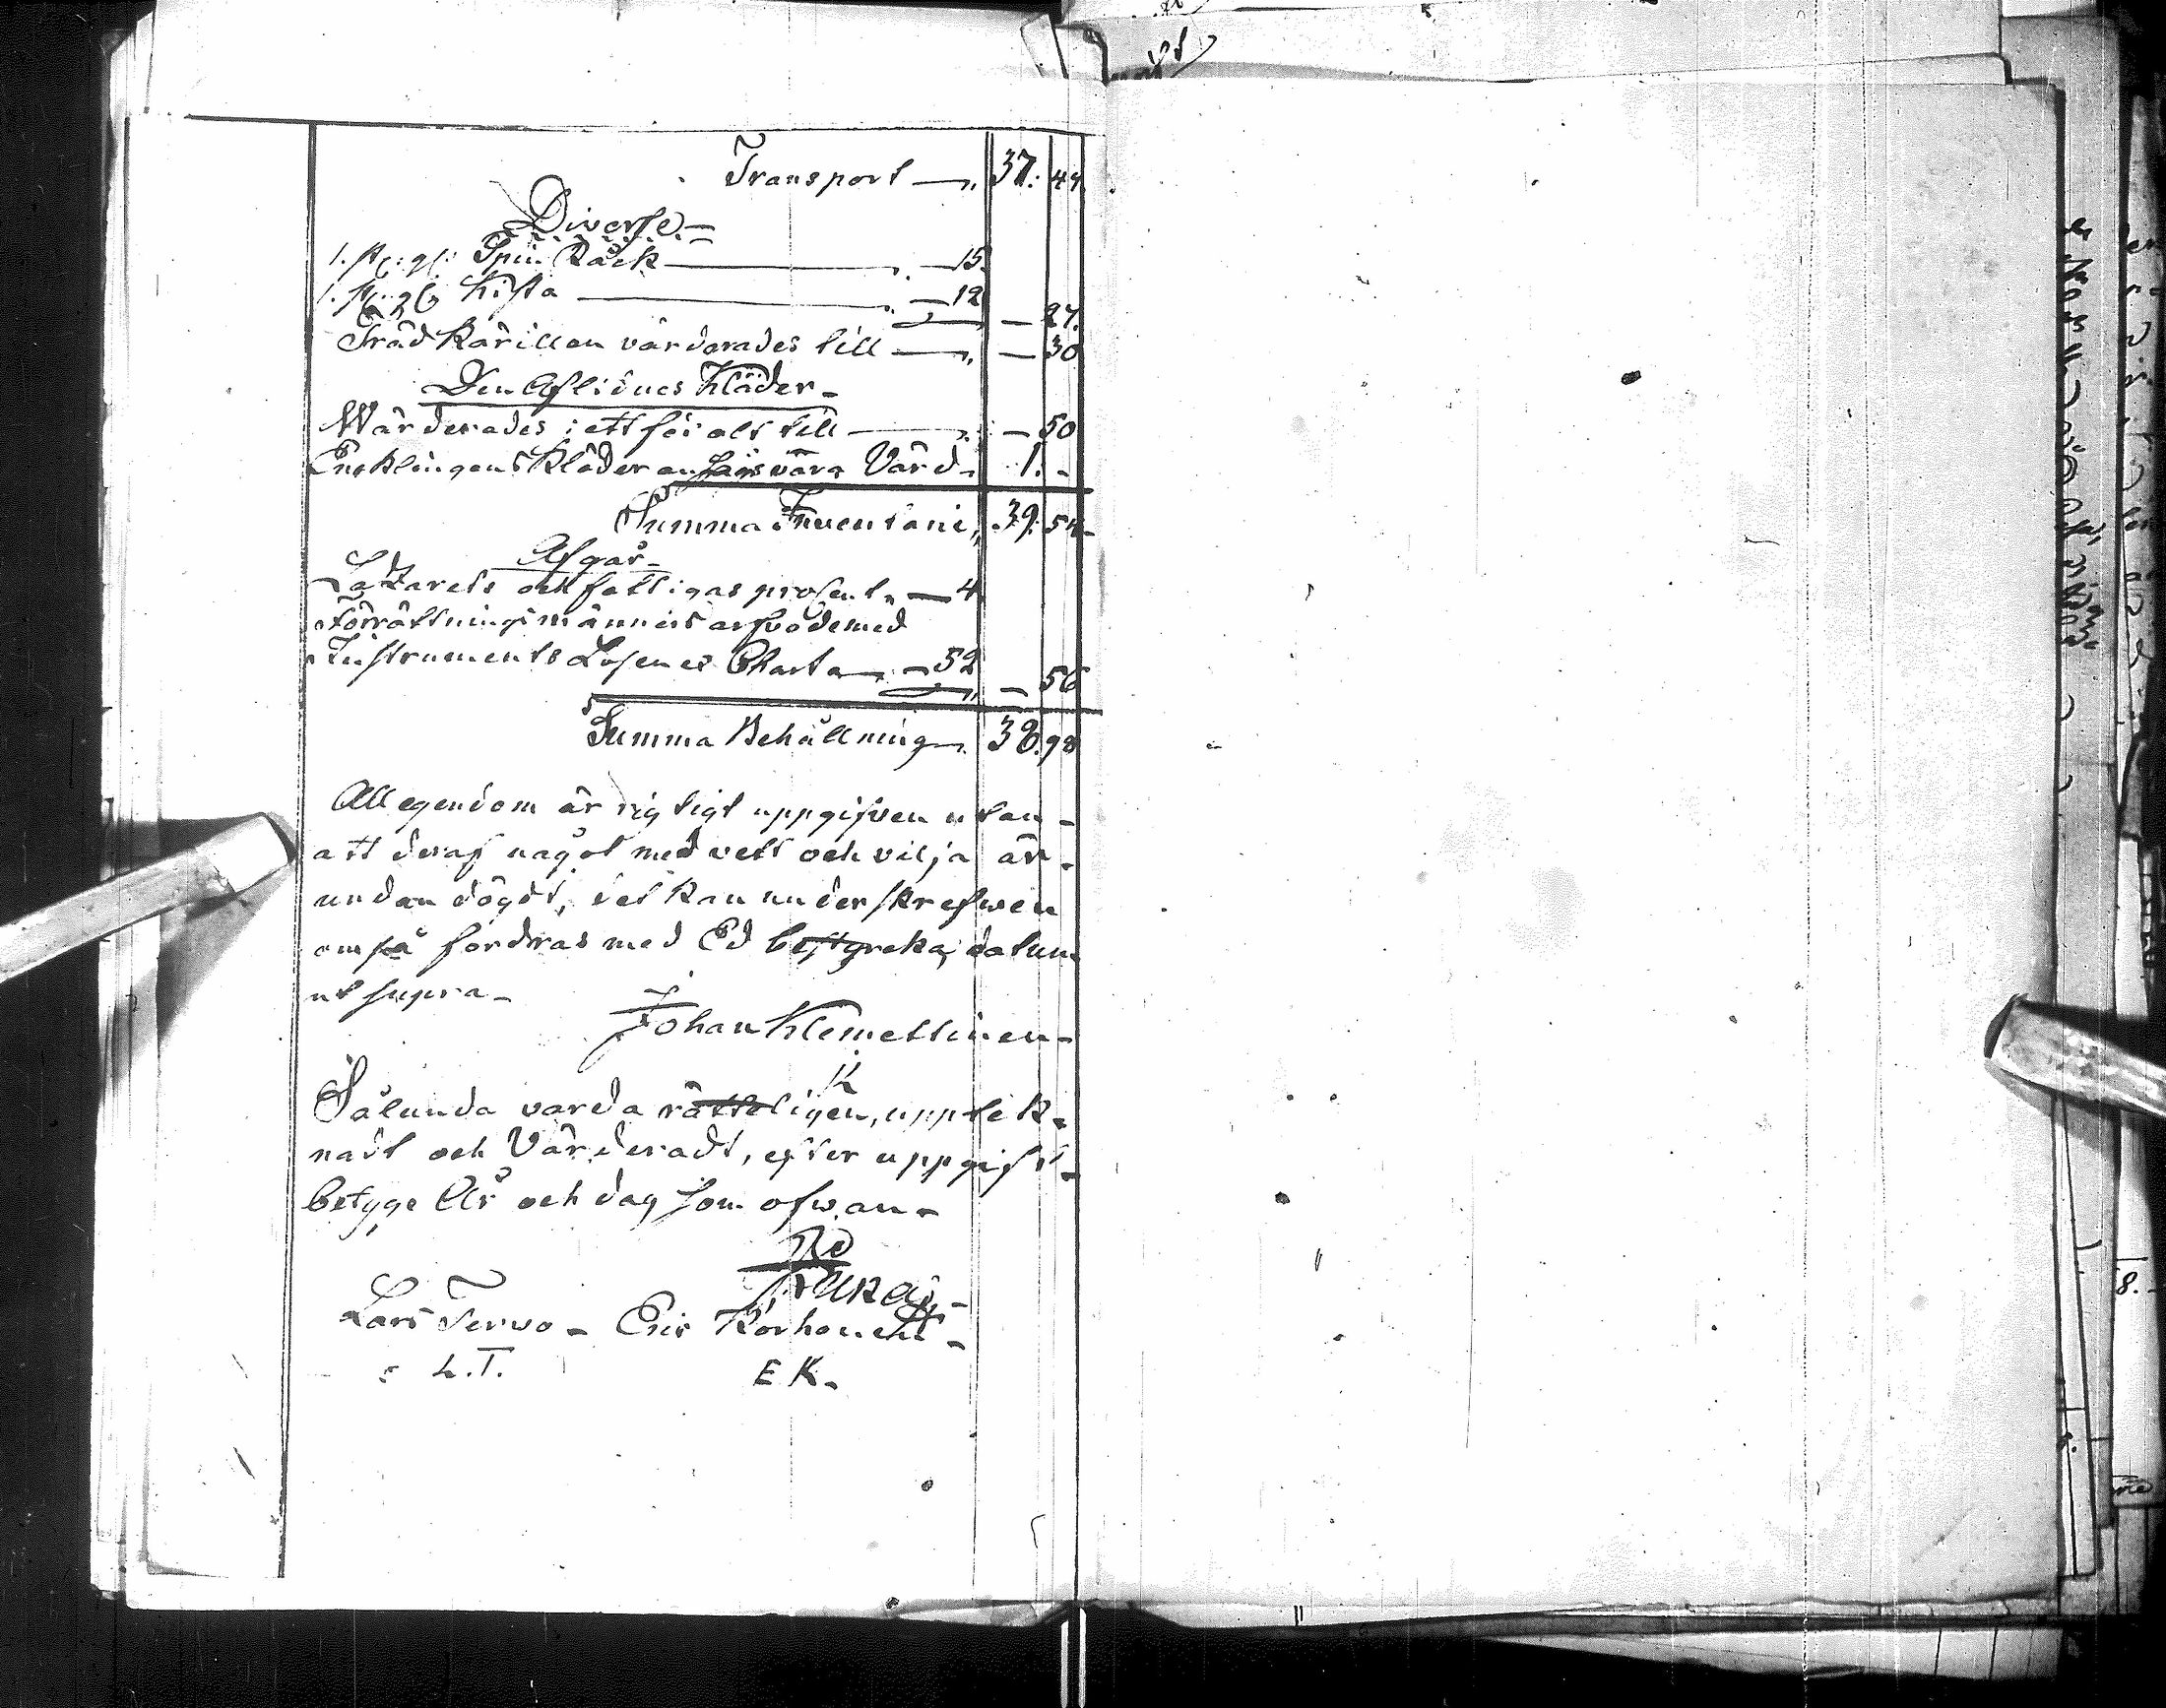 Transport — 37. 47
Diverse
1. st: gl: Spin Råck — 15.
1. st: gl: Kista — 12 — 27.
Träd Kärillan värderades till — 30
Den Aflidnes Kläder
Wärderades i ett för alt till — 50
Encklingens Kläder ansågs vara Värd 1. -
Summa Inventarie 39. 54
Afgår
Lazarets och fattigas prosent — 4
Förrättningsmännens arfvode med
Instruments Lösen es Charta — 52 — 56
Summa Behållning 38. 98
All egendom är rigtigt uppgifven utan
att deraf något med vett och vilja är
undan dögdt, det kan underskrefwen
om så fordras med Ed bestyrcka, datum
ut supra
Johan Klemettinen
K
Sålunda varda rätteligen, upptek-
nadt och Värderadt, efter uppgift
betyge År och dag som ofwan
Lars Tervo - Eric Korhonen
L. T. E K.
8.